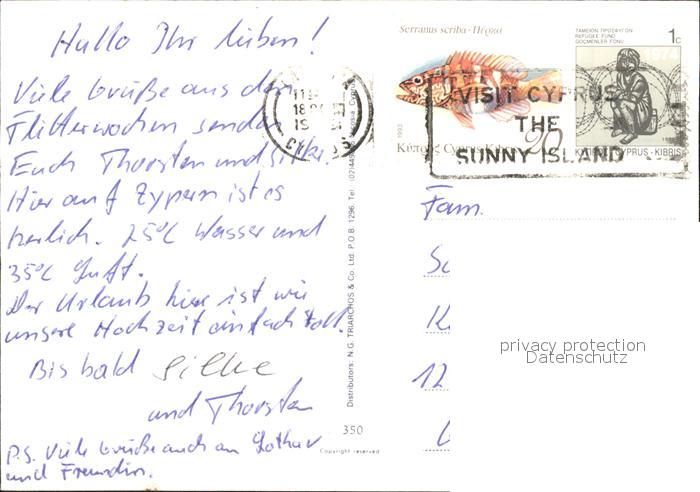 Hallo Ihr lieben!
Viele Grüße aus den
Flitterwochen senden
Euch Thorsten und Silke.
Hier auf Zypern ist es
herlich. 25°C Wasser und
35°C Luft.
Der Urlaub hier ist wie
unsere Hochzeit einfach toll.
Bis bald Silke
und Thorsten
P.S. Viele Grüße auch an Lothar
und Freundin.
Distributors: N.G. TRIARCHOS & Co. Ltd. P.O.B. 1296. Tel.
350
Copyright reserved
Serranus scriba - Πέρκα
1993
Κύπρος Cyprus Kıbrıs
20
ΤΑΜΕΙΟΝ ΠΡΟΣΦΥΓΩΝ
REFUGEE FUND
GOCMENLER FONU
1c
1974
CYPRUS - KIBRIS
VISIT CYPRUS
THE
SUNNY ISLAND
Fam.
12
privacy protection
Datenschutz